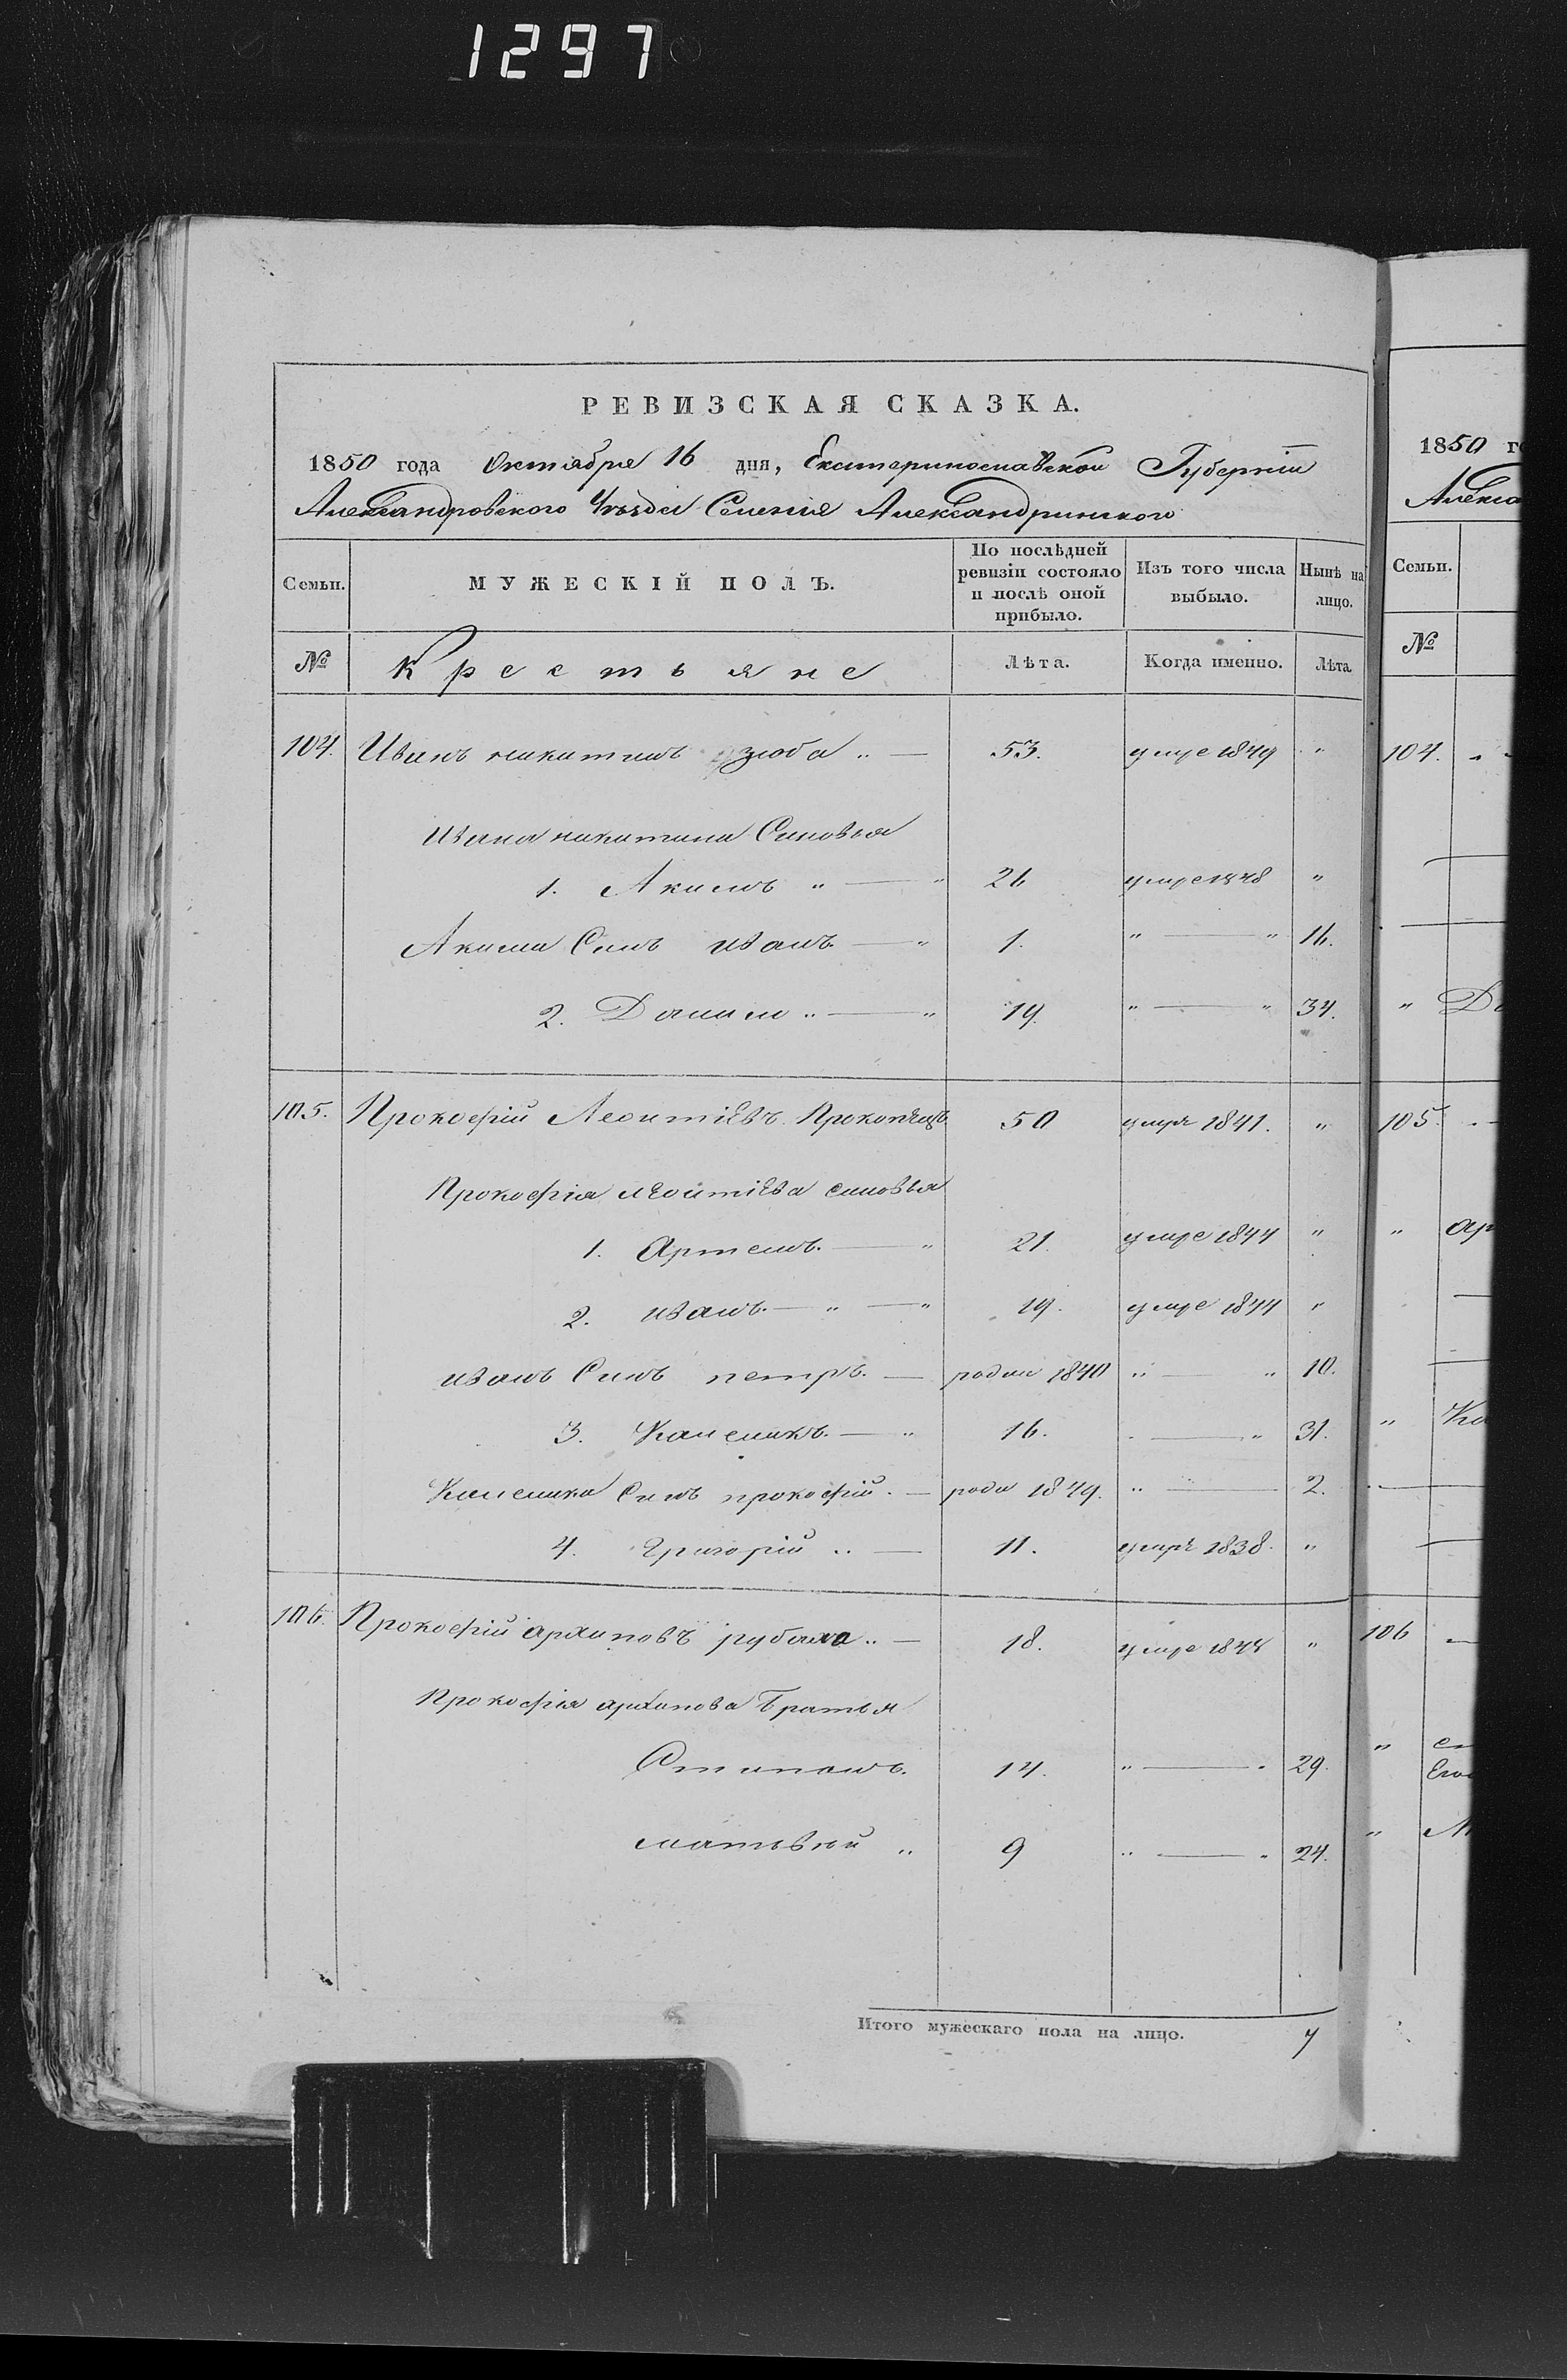 1297
РЕВИЗСКАЯ СКАЗКА.
1850 года Октября 16 дня, Екатеринославской Губерніи
Александровского Уѣзда Селенія Александринского
Семьи. МУЖЕСКІЙ ПОЛЪ. По послѣдней ревизіи состояло и послѣ оной прибыло. Изъ того числа выбыло. Нынѣ на лицо.
№ Крестьяне Лѣта. Когда именно. Лѣта.
104. Иванъ никитинъ зюба „ — 53. умре 1849 „
Ивана никитина Синовья
1. Акимъ „ — „ 21 умре 1848 „
Акима Синъ иванъ — „ 1. „ — „ 16.
2. Данило „ — „ 19. „ — „ 34.
105. Прокофій Леонтіевъ Прокопецъ 50 умре 1841. „
Прокофія леонтіева синовья
1. Артемъ. — „ 21. умре 1844 „
2. иванъ. — „ — „ 19. умре 1844 „
иванъ Синъ петръ. — родил 1840 „ — „ 10.
3. Каленикъ. — „ 16. „ — „ 31.
Каленика Синъ прокофій. — роди 1849. „ — 2.
4. Григорій „ — 11. умре 1838. „
106. Прокофій архиповъ — 18. умре 1848 „
Прокофія архипова Братья
Стипанъ. 14. „ — „ 29.
матвѣй „ 9 „ — „ 24.
Итого мужескаго пола на лицо. 7
1850
Семьи.
№
104.
105.
106